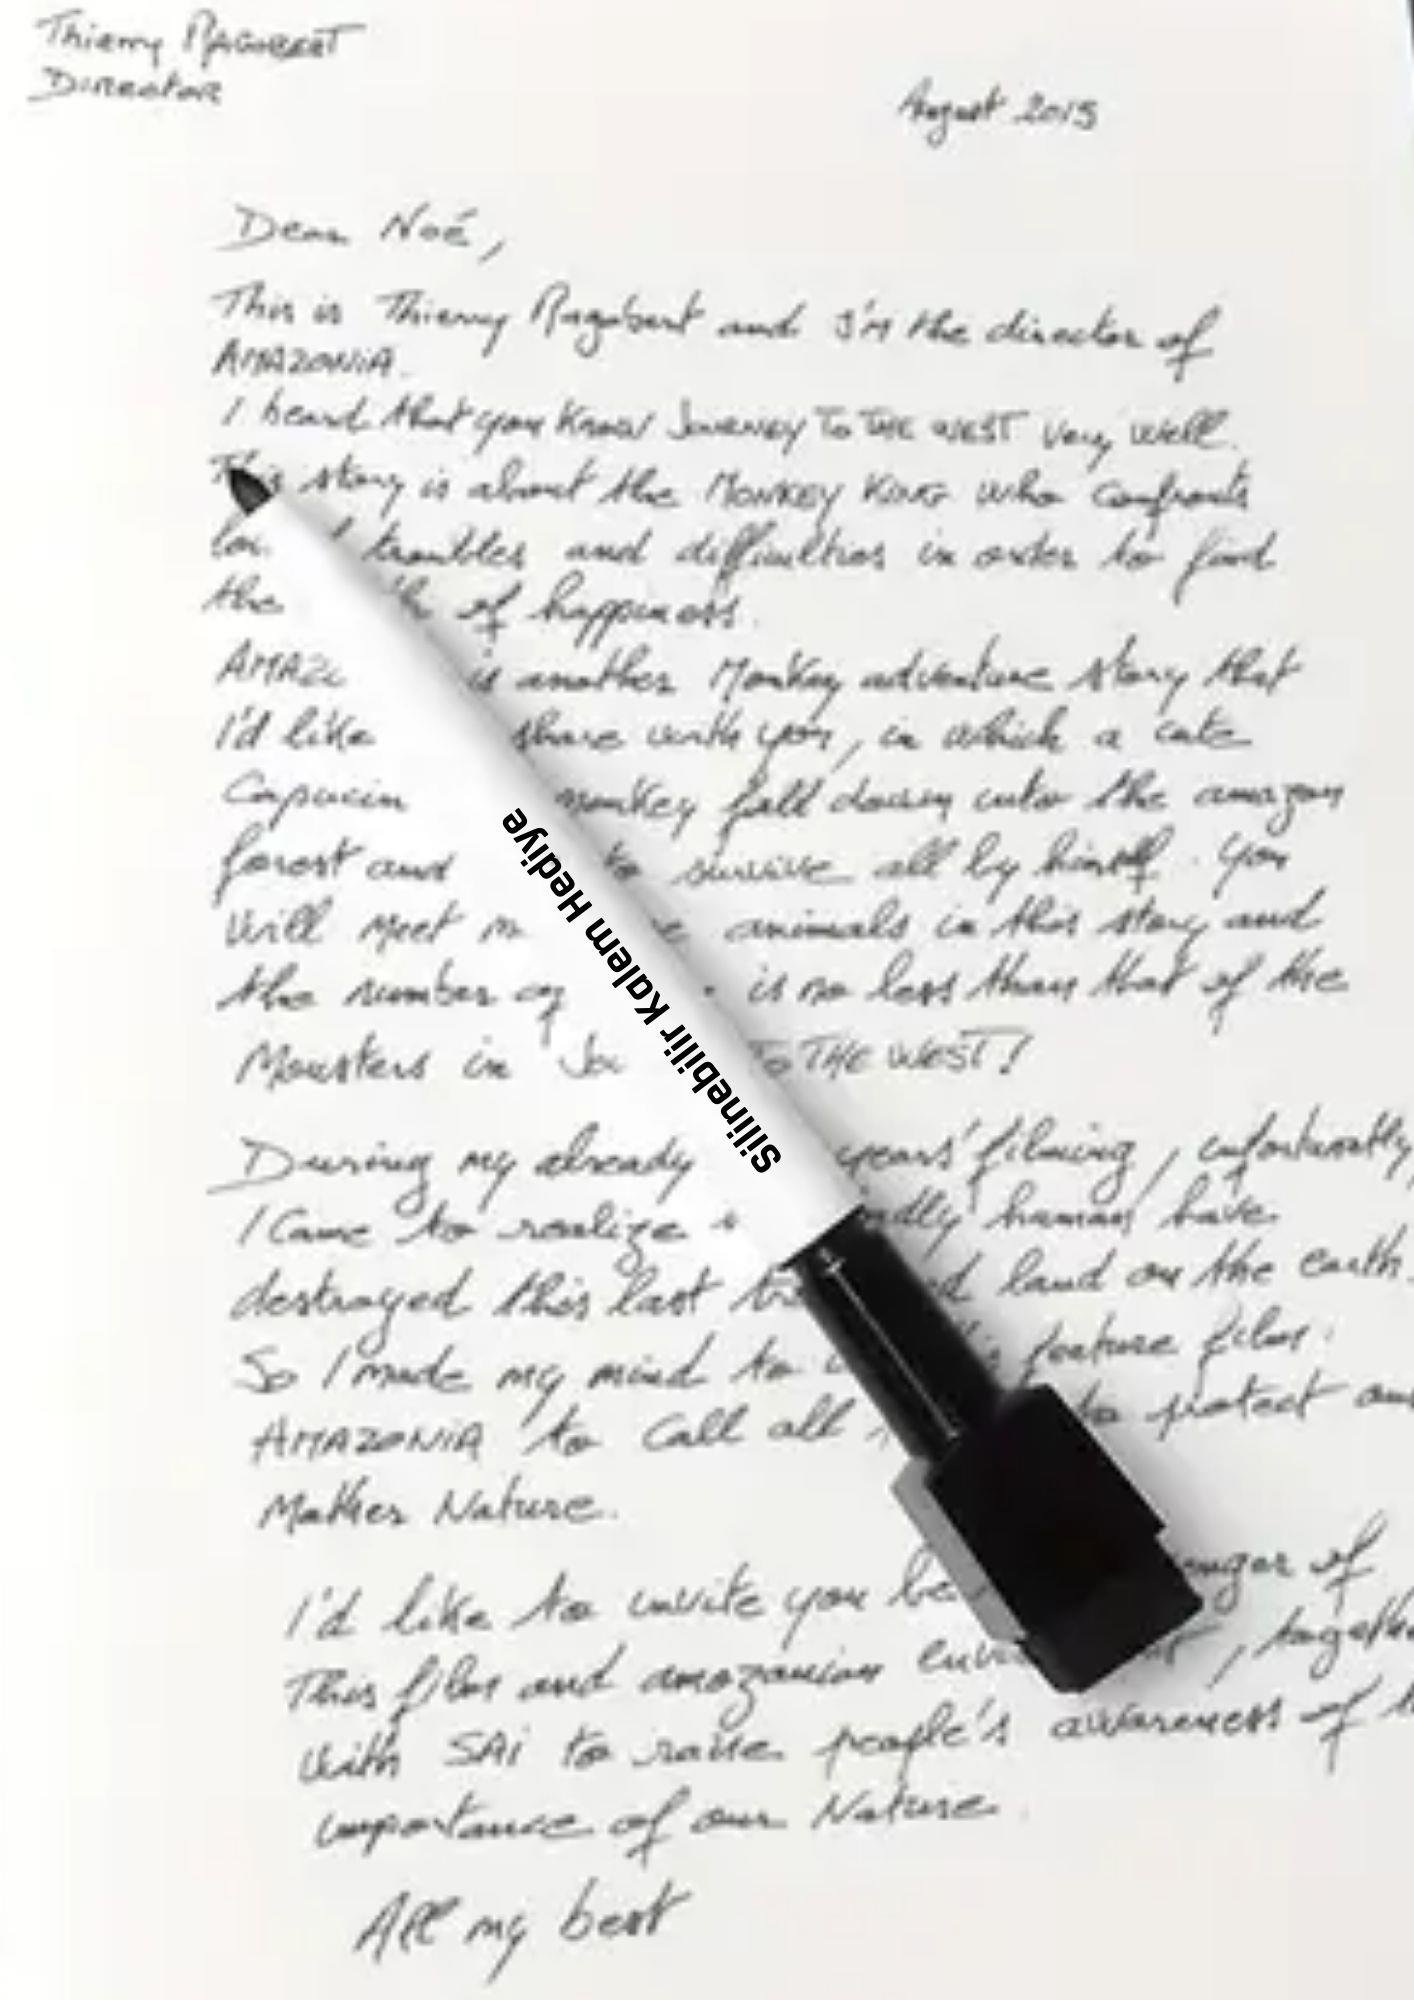 Thierry RAGOBERT
Director
August 2015
Dear Noé,
This is Thierry Ragobert and I'm the director of
AMAZONIA.
I heard that you know JOURNEY TO THE WEST very well.
This story is about the MONKEY KING who confronts
troubles and difficulties in order to find
the of happiness.
is another Monkey adventure story that
I'd like share with you, in which a cute
Capucin monkey fall down into the amazon
forest and to survive all by himself. You
will meet animals in this story and
the number is no less than that of the
Monsters in TO THE WEST!
During my already years' filming, unfortunatly,
I came to realize human have
destroyed this last land on the earth.
So I made my mind to feature film.
AMAZONIA to call all to protect our
Mother Nature.
I'd like to invite you be of
This film and amazonian
with SAI to raise people's awareness of
importance of our Nature.
All my best
Silinebilir Kalem Hediye